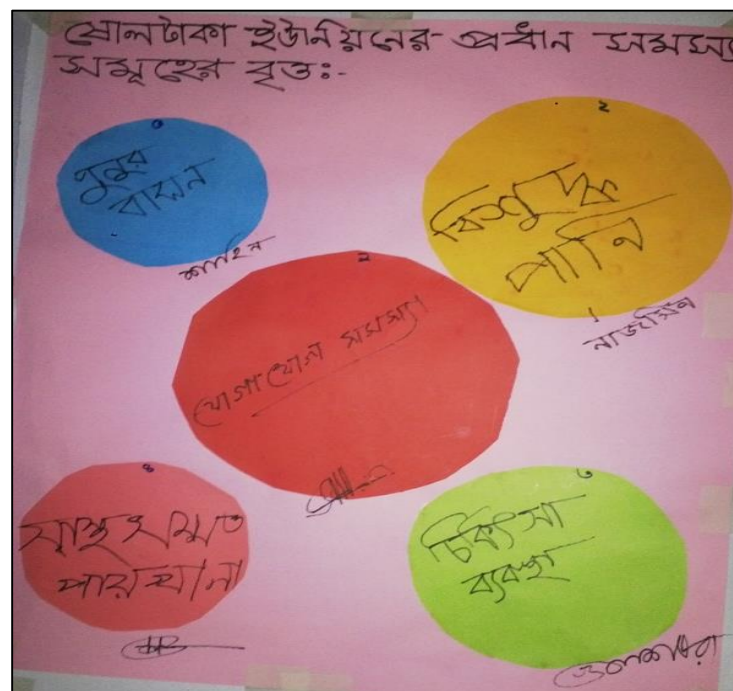 ষোলটাকা ইউনিয়নের প্রধান সমস্যা
সমূহের বৃত্তঃ-
৫
পুনুর
বাসন
শাহিন
২
বিশুদ্ধ
পানি
নাজমিন
১
যোগাযোগ সমস্যা
৪
স্বাস্থ্য সম্মত
পায়খানা
৩
চিকিৎসা
ব্যবস্থা
গুলশানারা